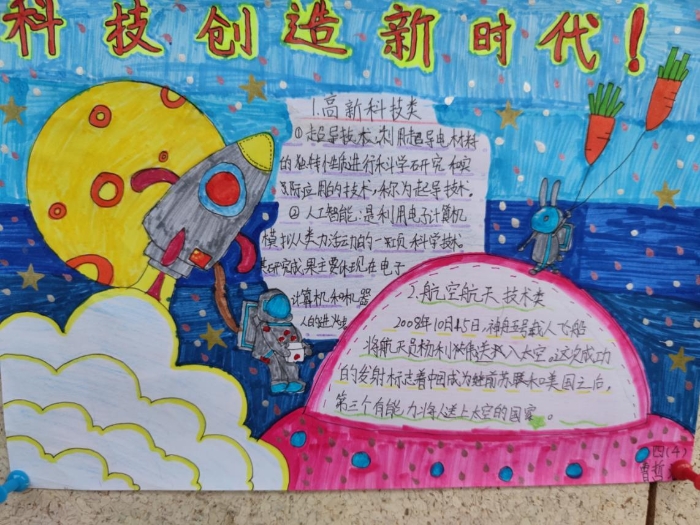 科技创造新时代!
1.高新科技类
①超导技术:利用超导电材料
的独特性质进行科学研究和实
际应用的技术,称为超导技术。
②人工智能:是利用电子计算机
模拟人类力活动的一项科学技术。
其研究成果主要体现在电子
计算机和机器
人的进步
2.航空航天技术类
2008年10月15日,神舟五号载人飞船
将航天员杨利伟送入太空。这次成功
的发射标志着中国成为继前苏联和美国之后,
第三个有能力将人送上太空的国家。
四(4)
曹哲